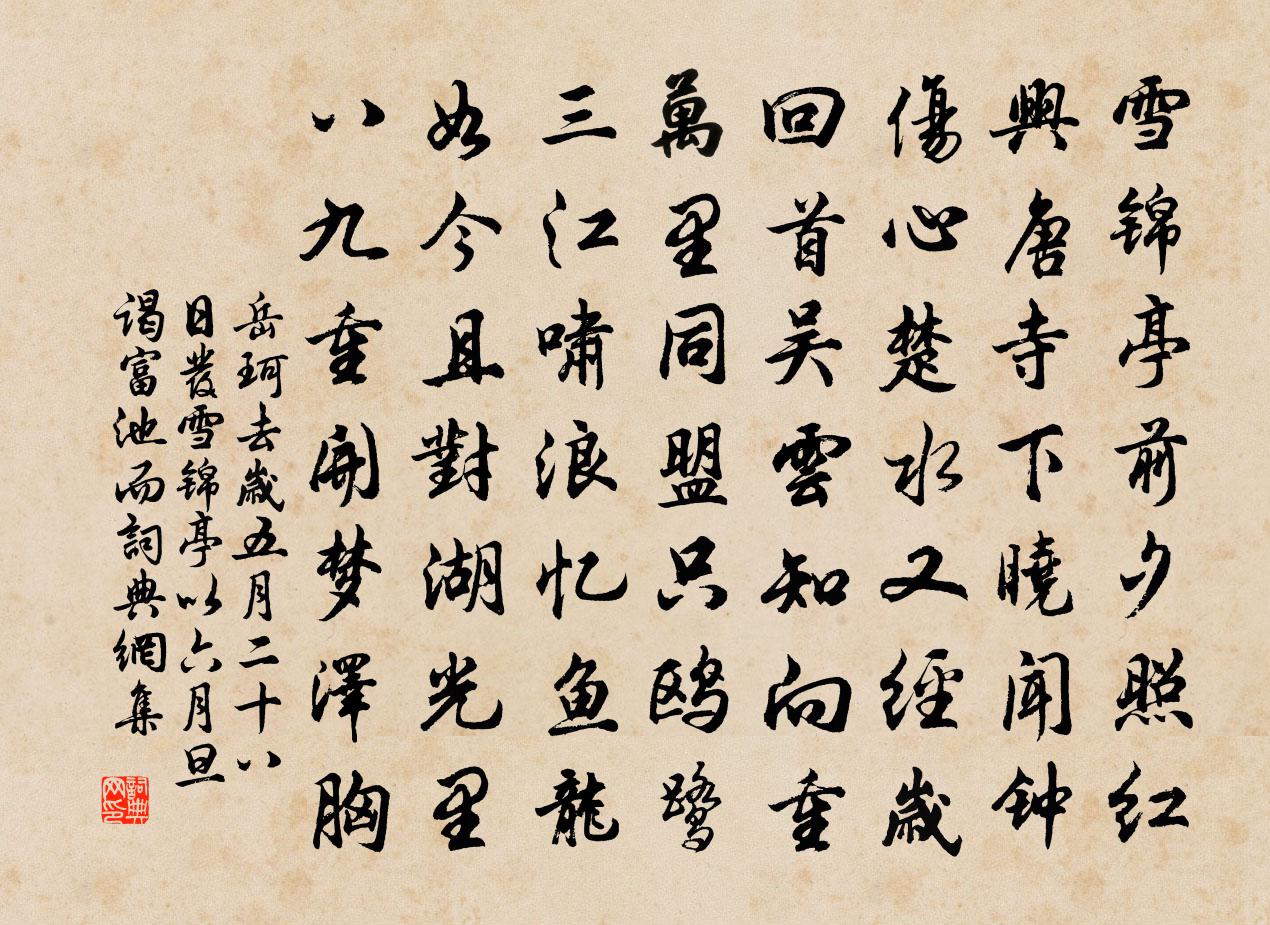 雪锦亭前夕照红
興唐寺下曉闻钟
傷心楚水又經歲
回首吴雲知向重
萬里同盟只鸥鹭
三江嘯浪忆鱼龍
如今且對湖光里
八九重開梦澤胸
岳珂去歲五月二十八
日發雪锦亭以六月旦
谒富池而詞典網集
詞典网印